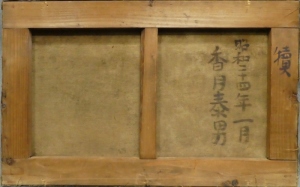 昭和二十四年一月
香月泰男